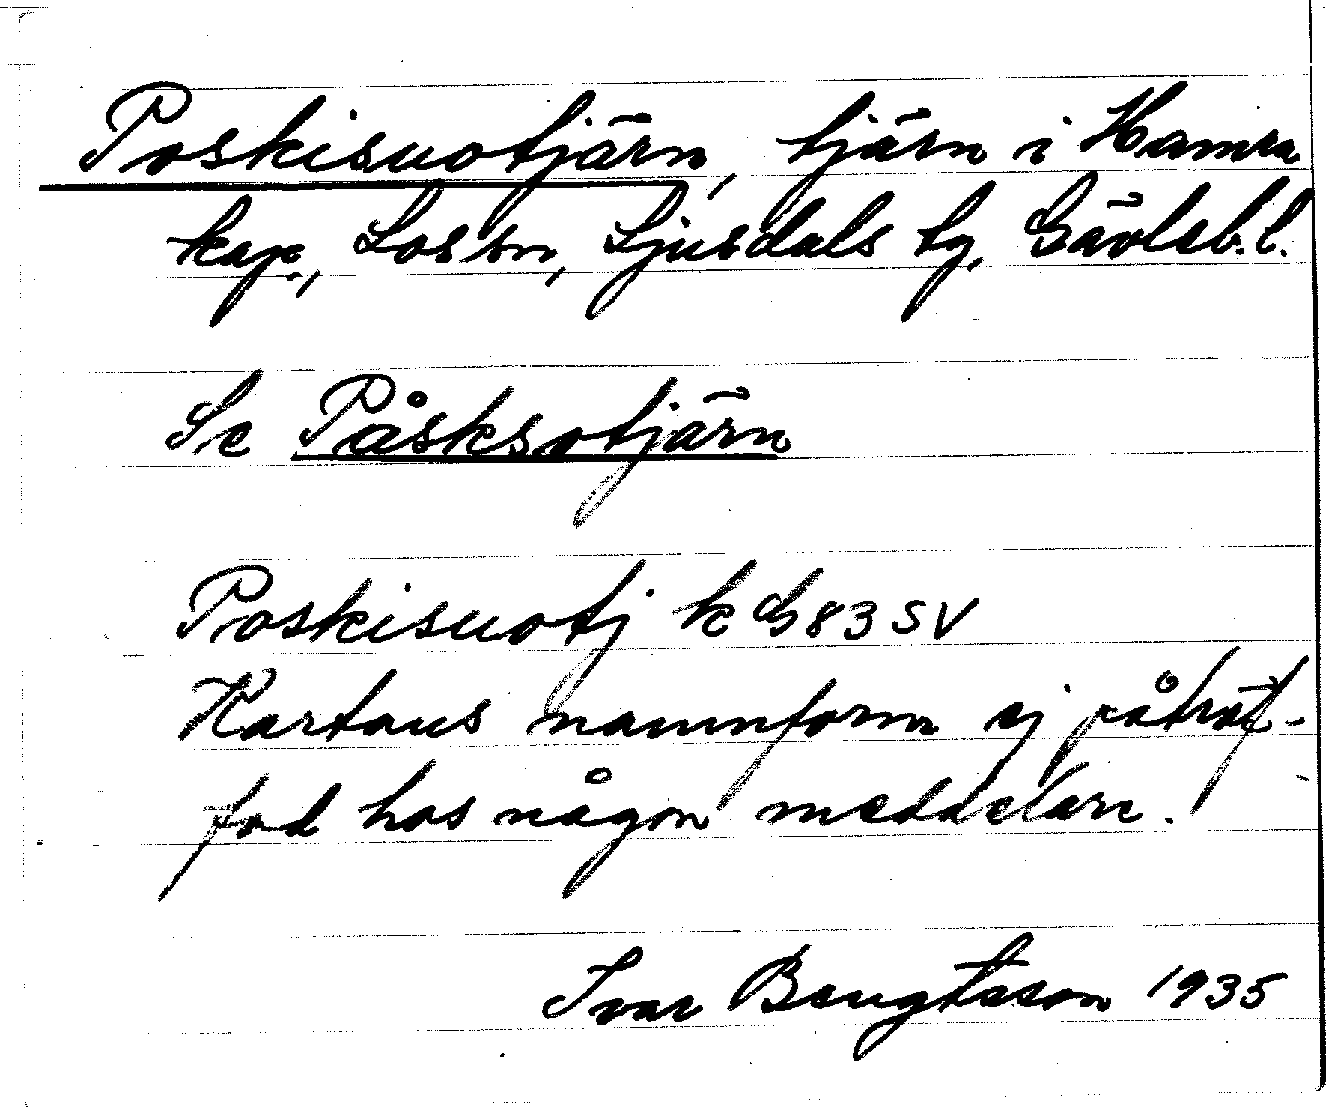 Poskisuotjärn, tjärn i Hamra
kap., Los sn, Ljusdals tg, Gävleb. l.
Se Påsksotjärn
Poskisuotj k G 83 SV
Kartans namnform ej påträf-
fad hos någon meddelare.
Ivar Bengtsson 1935